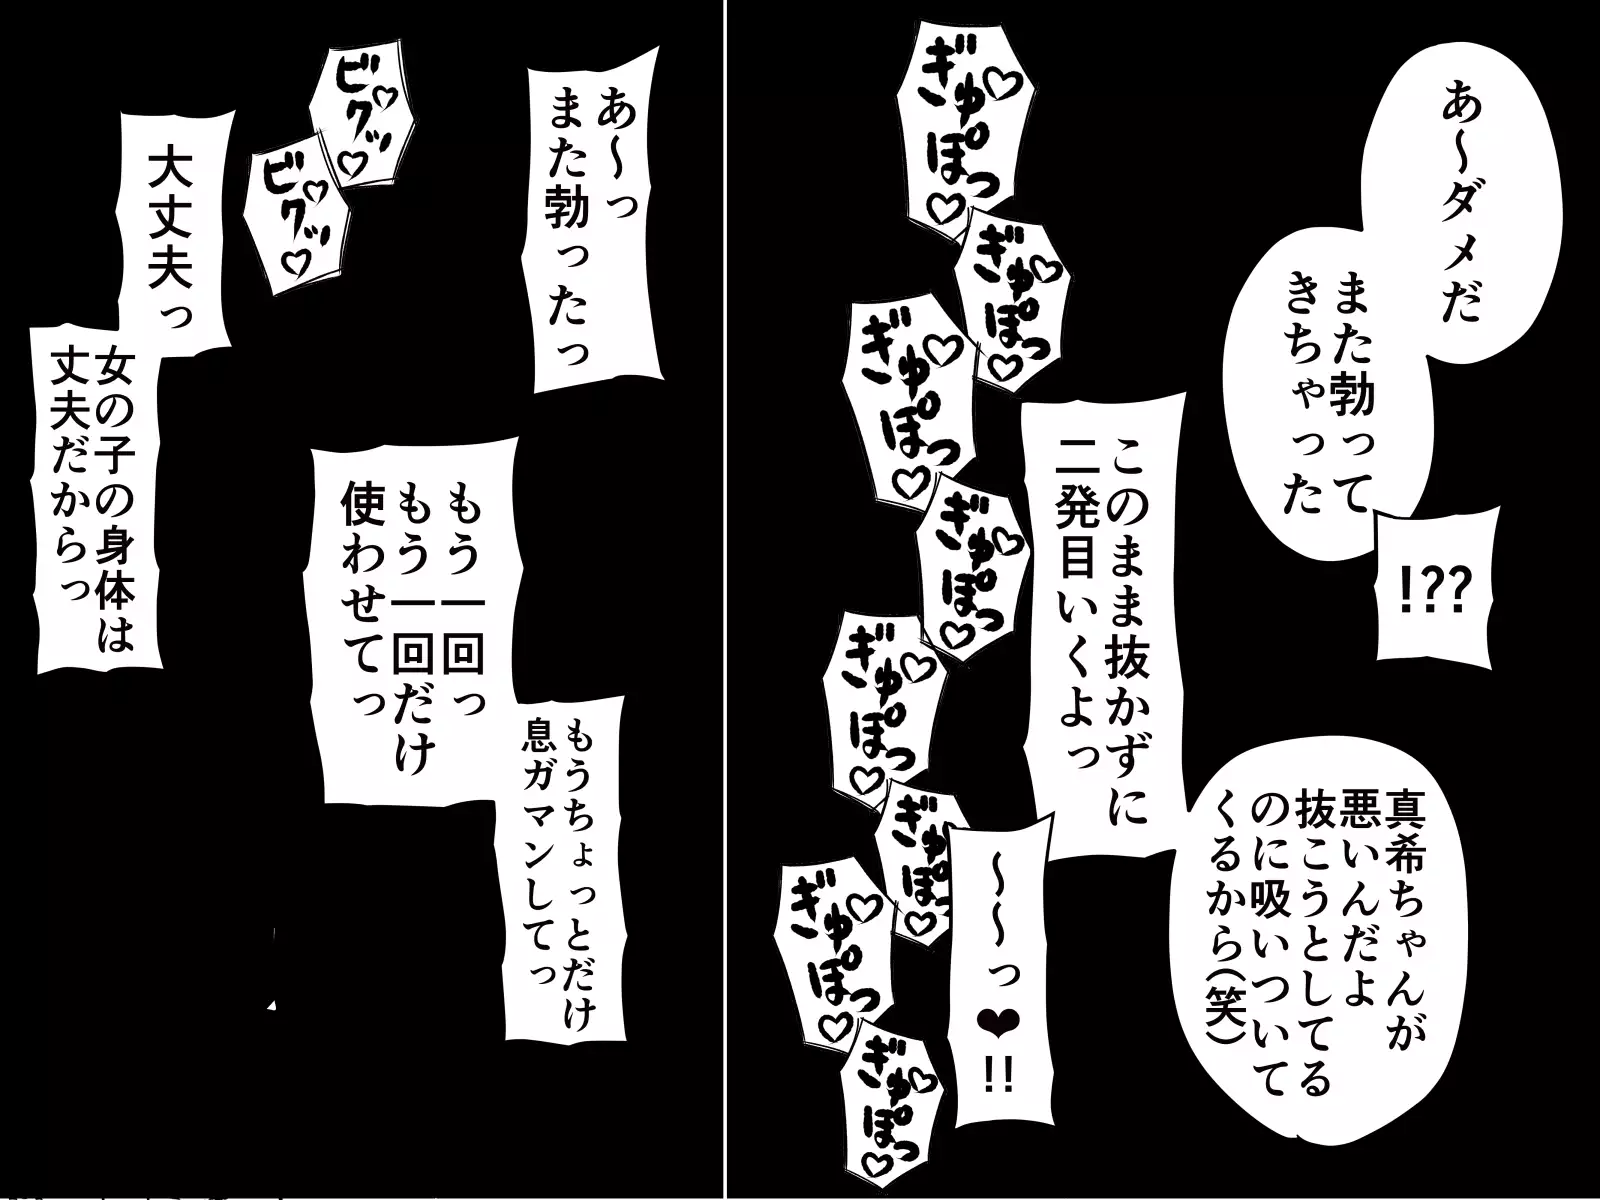 あ～ダメだ
また勃って
きちゃった
!??
ぎゅぽっ♡
ぎゅぽっ♡
ぎゅぽっ♡
ぎゅぽっ♡
ぎゅぽっ♡
ぎゅぽっ
ぎゅぽっ♡
ぎゅぽっ♡
このまま抜かずに
二発目いくよっ
真希ちゃんが
悪いんだよ
抜こうとしてる
のに吸いついて
くるから（笑）
～～っ❤!!
あ～っ
また勃ったっ
ビクッ♡
ビクッ♡
もう一回っ
もう一回だけ
使わせてっ
もうちょっとだけ
息ガマンしてっ
大丈夫っ
女の子の身体は
丈夫だからっ